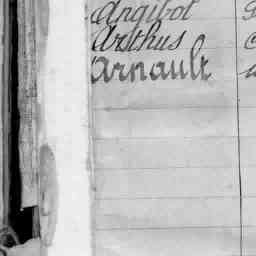 Angibot
Arsthus
Arnault